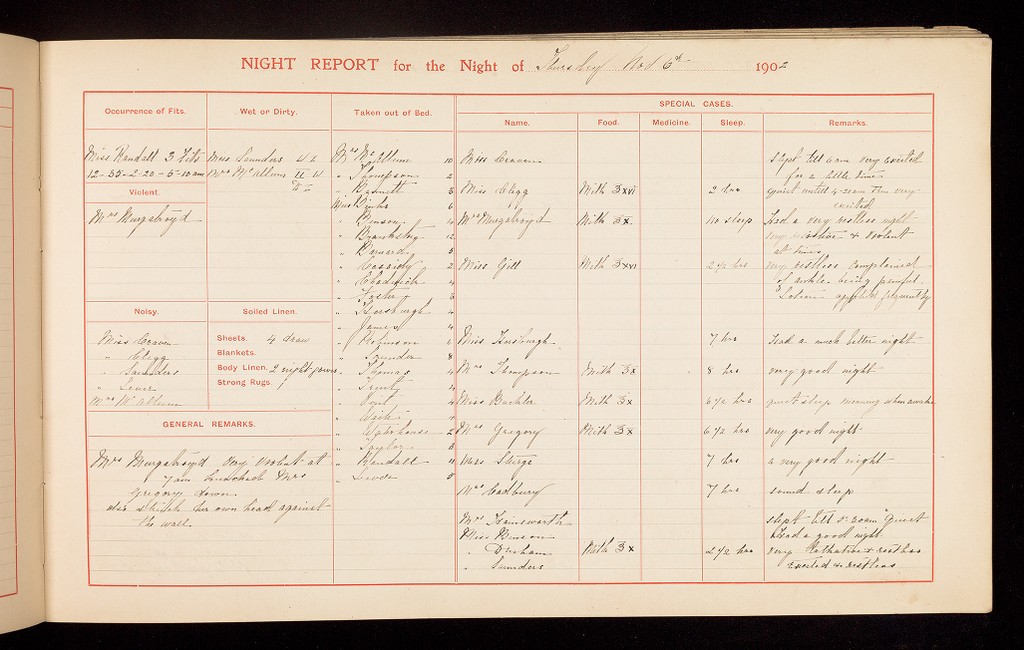 NIGHT REPORT for the Night of Thursday Nov 6th 1902
Occurrence of Fits.
Miss Randall 3 Fits
12-35-2-20-5-10 am
Violent.
Mrs Murgatroyd
Noisy.
Miss Craven
" Clegg
" Saunders
" Lever
Mrs McAllum
Wet or Dirty.
Miss Saunders
Mrs McAllum
Soiled Linen.
Sheets. 4 draw
Blankets.
Body Linen. 2 night gowns
Strong Rugs.
GENERAL REMARKS.
Mrs Murgatroyd very violent at
7 am Mrs
Gregory down
her own head against
the wall.
Taken out of Bed.
Mrs McAllum 10
" Thompson 2
" Barnett 3
Miss 6
" Benson 4
" 12
" 3
" Cassidy 2
" Chadwick 4
" Foster 3
" Horsburgh 4
" James 4
" Robinson 6
" Saunders 8
" Thomas 4
" 4
" 4
" 4
" Waterhouse 2
" Taylor 3
" Randall 4
" Lever 5
SPECIAL CASES.
Name. Food. Medicine. Sleep. Remarks.
Miss Craven Slept till 6 am very excited
for a little time
Miss Clegg Milk ℥xvi 2 hrs quiet until 4-20am then very
excited
Mrs Murgatroyd Milk ℥x no sleep Had a very restless night
very & violent
at times
Miss Gill Milk ℥xvi 2 1/2 hrs very restless complained
of ankle being painful.
Lotion applied frequently
Miss Horsburgh 7 hrs Had a much better night
Mrs Thompson Milk ℥x 8 hrs very good night
Miss Buckler Milk ℥x 6 1/2 hrs quiet sleep moaning when awake
Mrs Gregory Milk ℥x 6 1/2 hrs very good night
Mrs Sturge 7 hrs a very good night
Mrs Cadbury 7 hrs sound sleep
Mrs slept till quiet
Miss Benson Had a good night
" Durham Milk ℥x 2 1/2 hrs very talkative & restless
" Saunders Excited & restless